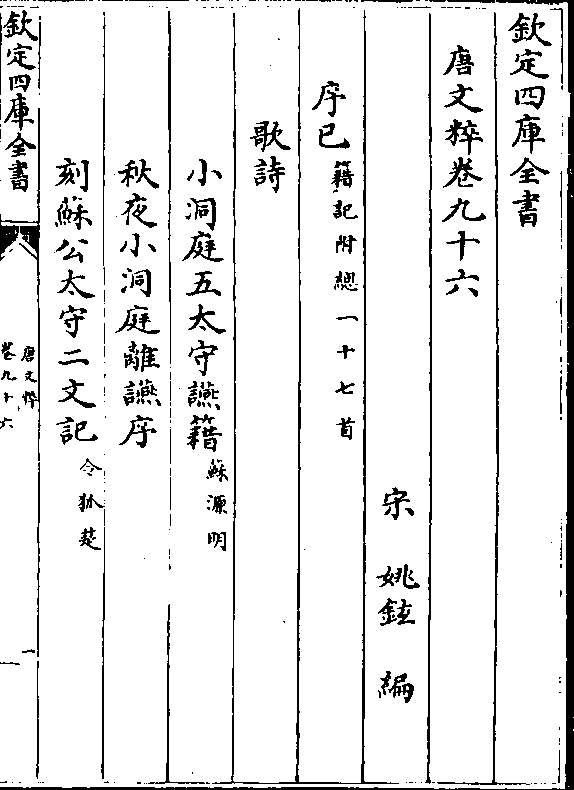 欽定四庫全書
唐文粹卷九十六
宋 姚鉉 編
序已 籍記附總一十七首
歌詩
小洞庭五太守讌籍 蘇源明
秋夜小洞庭離讌序
刻蘇公太守二文記 令狐楚
欽定四庫全書
唐文粹
卷九十六
一